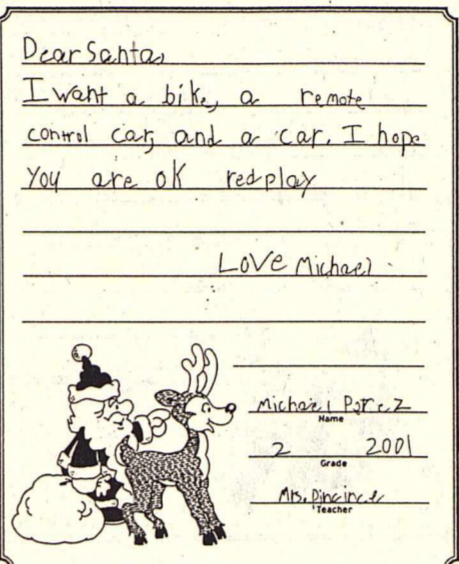 Dear Santa,
I want a bike, a remote
control car, and a car. I hope
you are ok redplay
Love Michael
Michael
Name
2 2001
Grade
Mrs.
Teacher